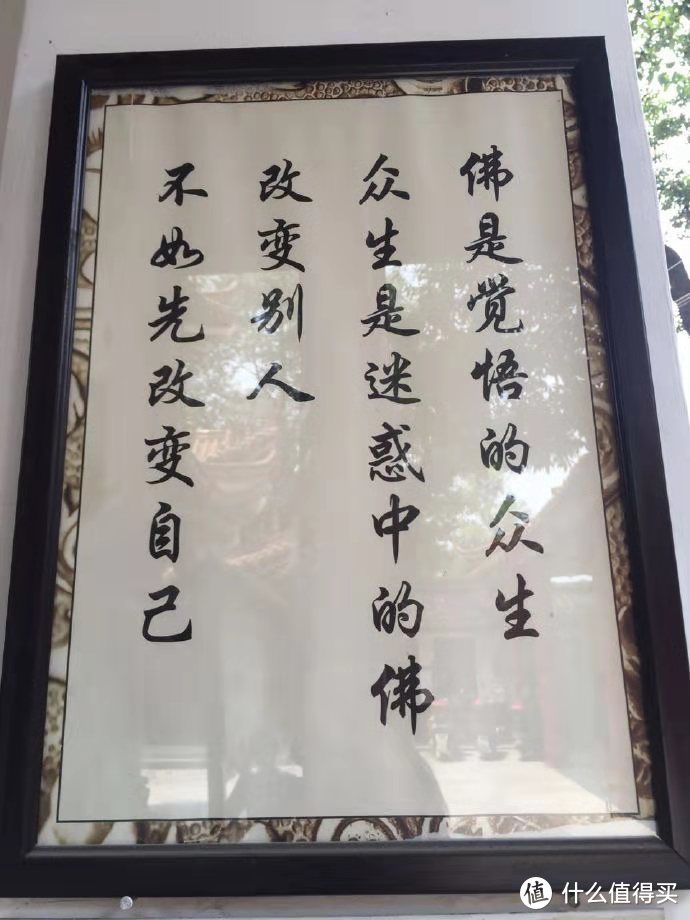 佛是觉悟的众生
众生是迷惑中的佛
改变别人
不如先改变自己
值 什么值得买